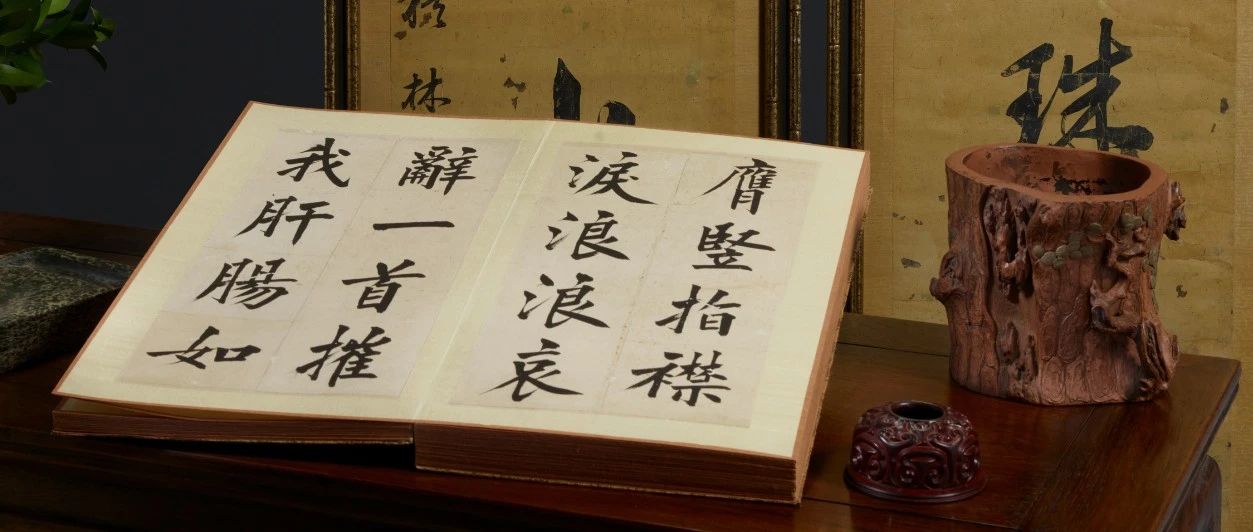 膺竪指襟
淚浪浪哀
辭一首摧
我肝腸如
珠
林